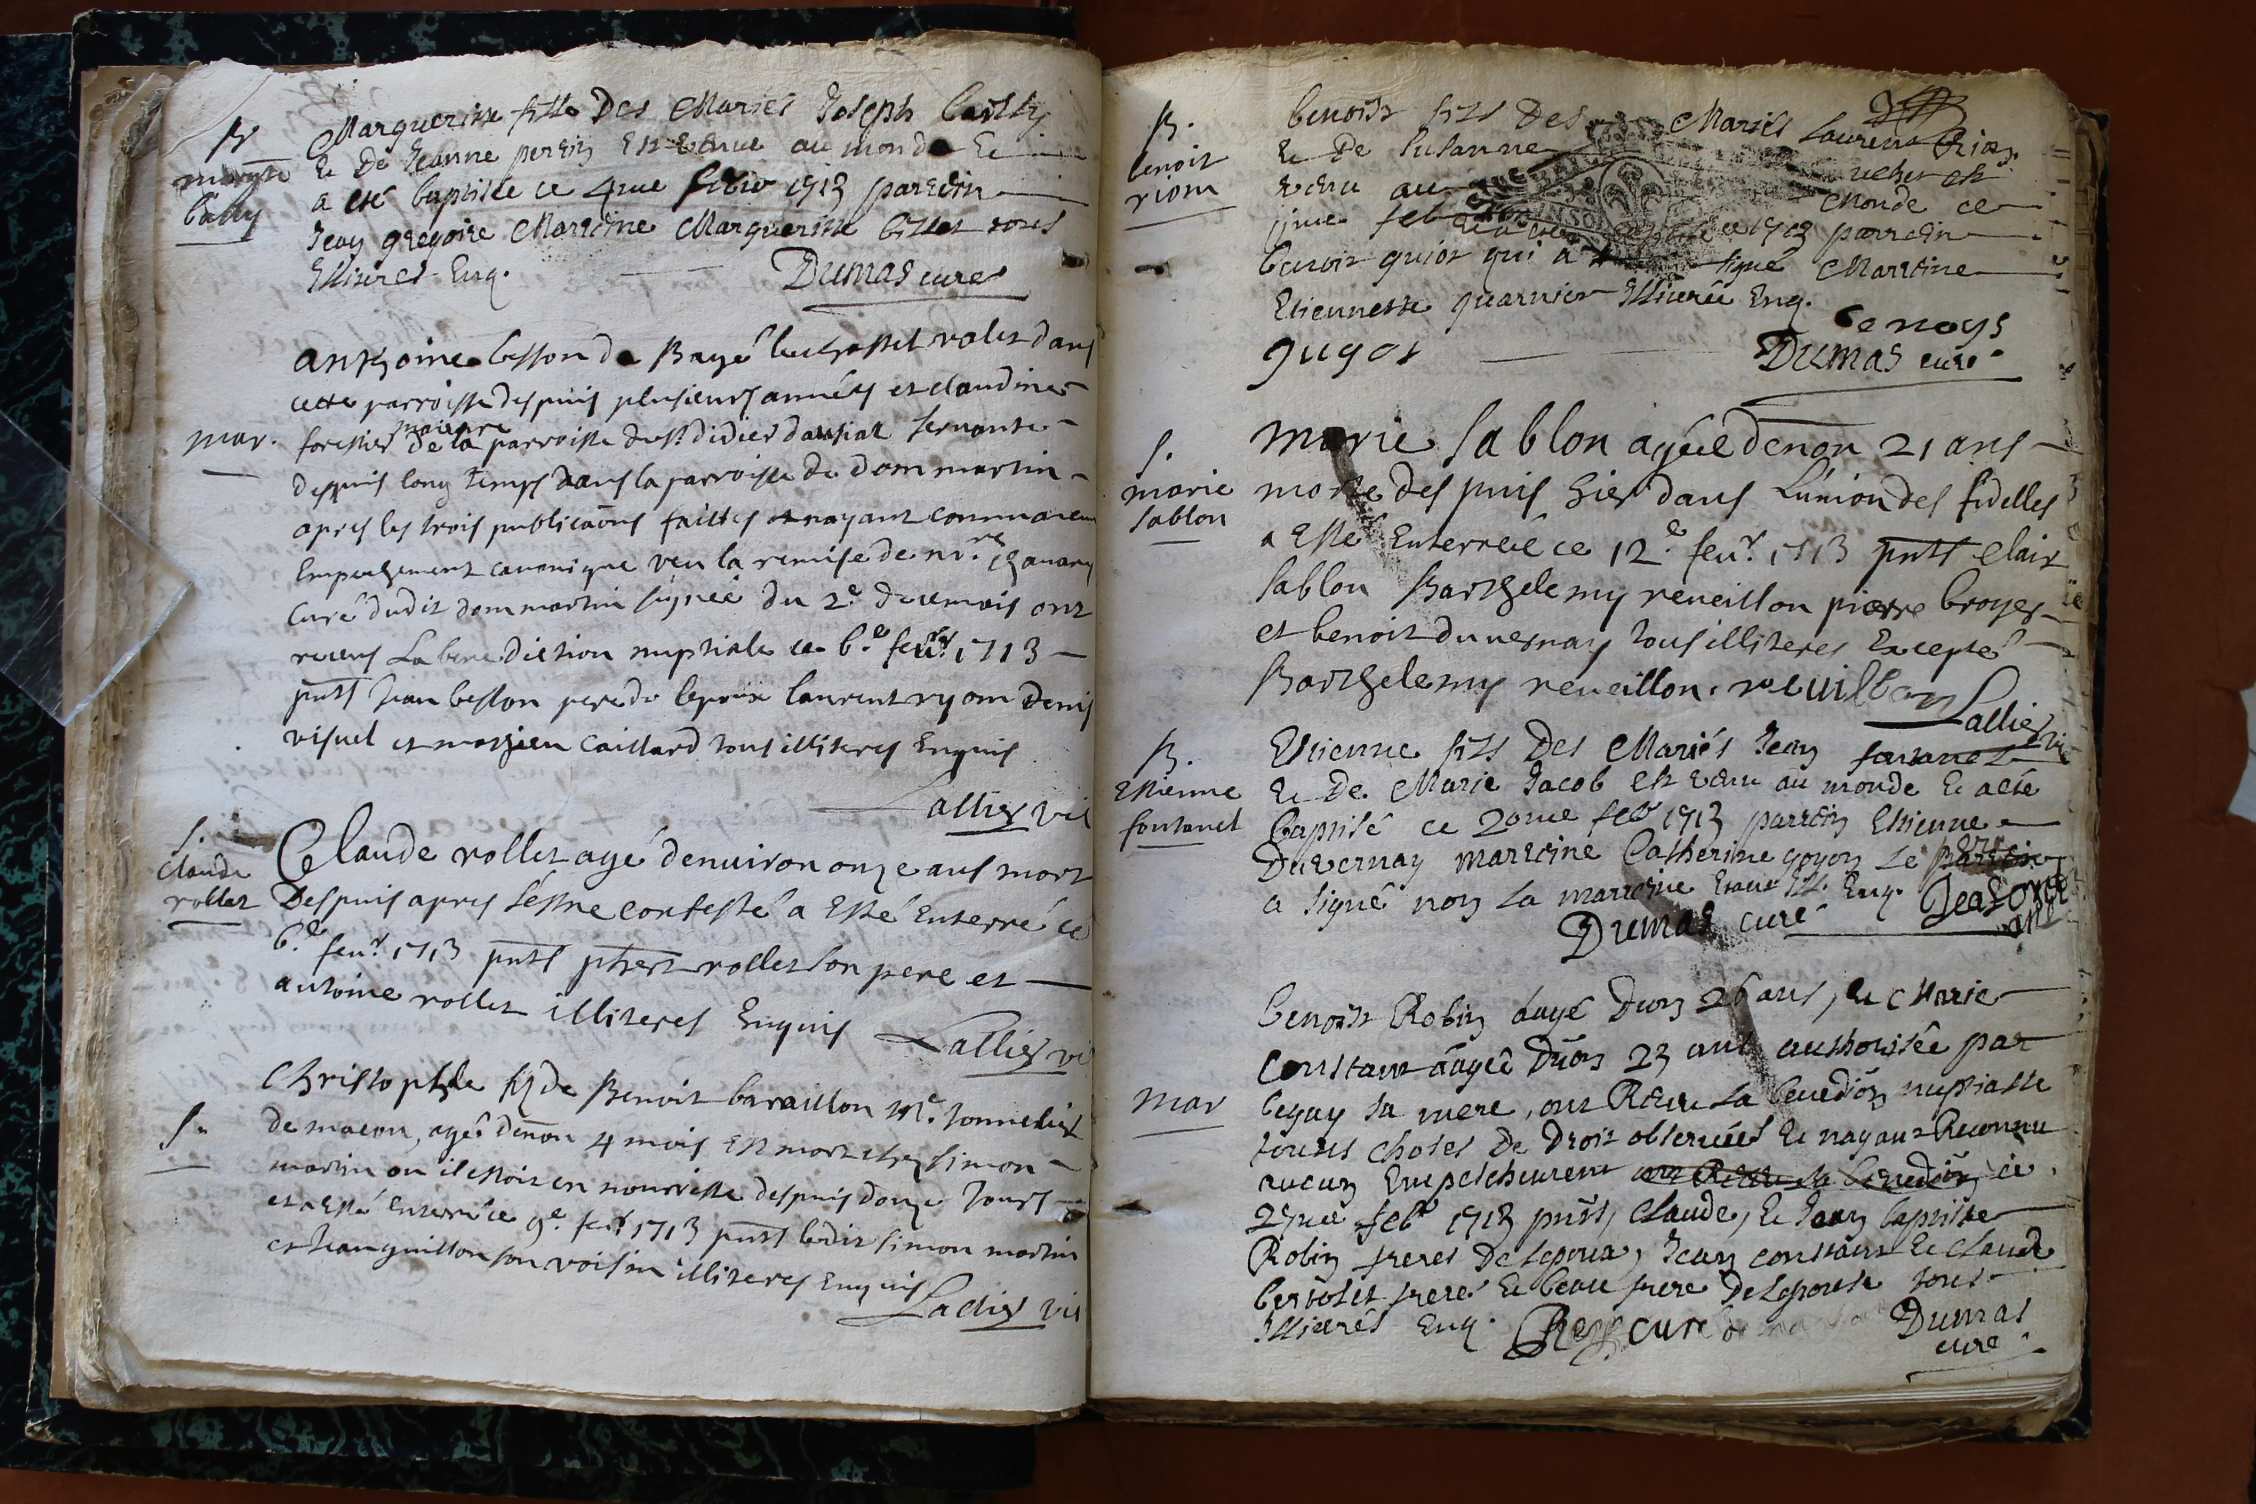 B
margte
bailly
Margueritte fille Des Mariés Joseph bailly
Et De Jeanne perrin Est venue au monde Et
a eté baptisée ce 4me febvr 1713 parrein
Jean gregoire Marreine Margueritte billet tous
Illiterés Enq.
Dumas curé
mar.
anthoine besson de Bagé le chastel valet dans
cette parroisse despuis plusieurs années et claudine
forestier majeure de la parroisse de st didier daussiat servante
despuis long temps dans la parroisse de dommartin
apres les trois publicaons faittes et nayant connu aucun
Empeschement canonique veu la remise de mre
curé dudit dommartin signée du 2e du ce mois ont
receus La benediction nuptiale ce 6e feuvr 1713
pnts Jean besson pere de lepoux laurent ryom Denis
visuel et mathieu Caillard tous illiteres Enquis
Lallier vic
S.
claude
rollet
Claude rollet agé denuiron onze ans mort
Despuis apres sestre confessé a Esté Enterré ce
6e feur 1713 pnts rollet son pere et
antoine rollet illiteres Enquis
Lallier vi
S.
Christophle fs de Benoit baraillon Me tonnelier
de macon, agé denon 4 mois Est mort chez simon
martin ou il estoit en nourrisse despuis douze Jours
et a Esté Enterré ce 9e feur 1713 pnts ledit simon martin
et Jean guillon son voisin illiteres Enquis
Lallier vic
B.
benoit
riom
benoist fils Des Mariés Laurent Riom
Et De Susanne est
venu au Monde ce
febvr 1713 parrein
benoit gujot qui a signé Marreine
Etiennette quarnier Illiterée Enq.
benoys
gugot
Dumas curé
S.
marie
sablon
Marie Sablon agéé denon 21 ans
morte despuis hier dans L'union des fidelles
a Esté Enterreé ce 12e feur 1713 pnts clair
sablon Barthelemy reveillon pierre broyer
et benoit duvernay tous illiteres Excepté
Barthelemy reveillon. revillon
Lallier vic
B.
Estienne
fontanel
Etienne fils Des Mariés Jean fontanel
Et De Marie Jacob Est venu au monde Et a eté
baptisé ce 20me febvr 1713 parrein Etienne
Duvernay marreine Catherine goyon Le pere
a signé non La marreine Enq.
Dumas curé
mar
benoist Robin aagé Dion 26 ans, Et Marie
constant aagée Dion 23 ans authorisée par
sa mere, ont Receu La benedion nuptialle
touttes choses De Droit observées Et nayant Reconnu
aucun Empeschement ont Receu la benedion ce
27me febr 1713 pnts, Claude, Et Jean baptiste
Robin freres De Lepoux, Jean constant Et claude
bertolet frere Et beau frere De Lepouse tous
Illiterés Enq. Rey curé
Dumas
curé